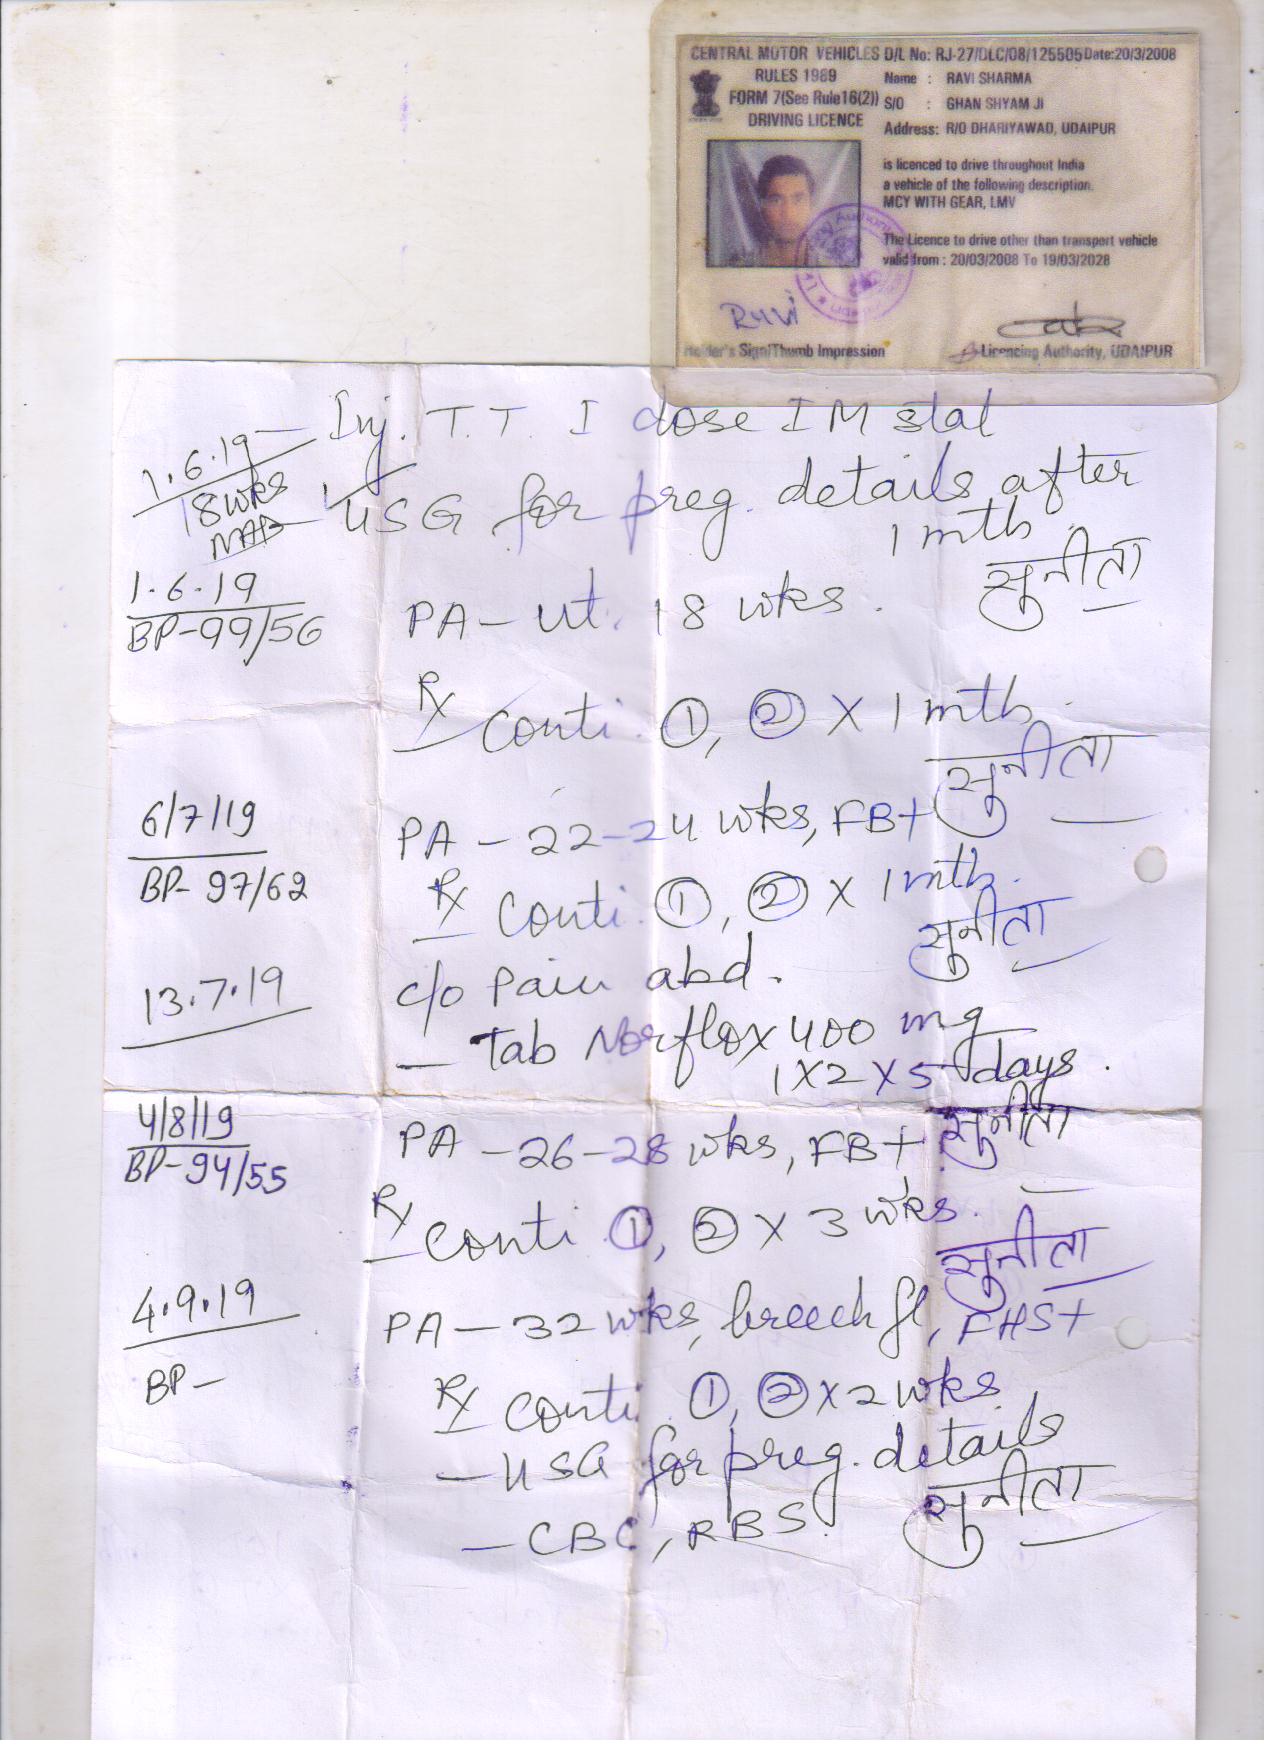 CENTRAL MOTOR VEHICLES D/L No: RJ-27/DLC/08/125505 Date:20/3/2008
RULES 1989 Name : RAVI SHARMA
FORM 7(See Rule16(2)) S/O : GHAN SHYAM JI
DRIVING LICENCE Address: R/O DHARIYAWAD, UDAIPUR
is licenced to drive throughout India
a vehicle of the following description.
MCY WITH GEAR, LMV
The Licence to drive other than transport vehicle
valid from : 20/03/2008 To 19/03/2028
Ravi
Holder's Sign/Thumb Impression Licencing Authority, UDAIPUR
1.6.19 — Inj. T.T. I dose IM stat
18 wks
— USG for preg. details after
1 mth.
सुनीता
1.6.19
BP-99/56 PA - ut. 18 wks.
Rx Conti. ①, ② X 1 mth.
सुनीता
6/7/19 PA - 22-24 wks, FB+
BP- 97/62 Rx Conti. ①, ② X 1 mth.
सुनीता
13.7.19 c/o Pain abd.
— Tab Norflox 400 mg
1X2X5 days.
सुनीता
4/8/19 PA - 26-28 wks, FB+
BP-94/55
Rx Conti. ①, ② X 3 wks.
सुनीता
4.9.19 PA - 32 wks, breech fl, FHS+
BP- Rx Conti. ①, ② X 2 wks
— USG for preg. details
सुनीता
— CBC, RBS.